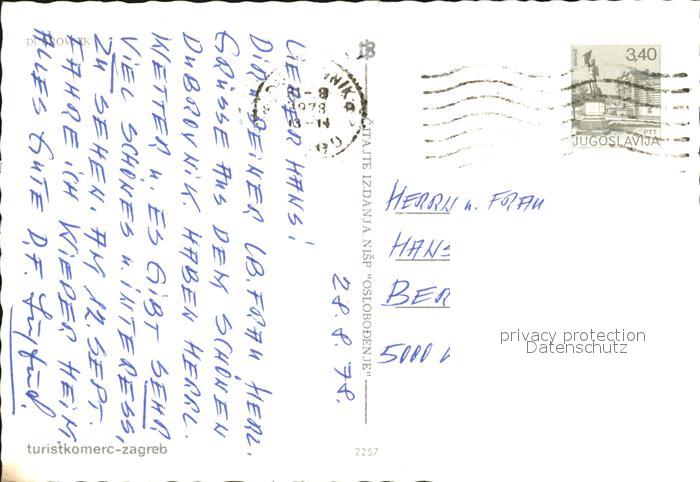 DUBROVNIK
LIEBER HANS!
DIR u. DEINER LB. FRAU HERL.
GRÜSSE AUS DEM SCHÖNEN
DUBROVNIK. HABEN HERRL.
WETTER u. ES GIBT SEHR
VIEL SCHÖNES u. INTERESS,
ZU SEHEN. AM 12. SEPT.
FAHRE ICH WIEDER HEIM.
ALLES GUTE D. F.
28.8.78.
turistkomerc-zagreb
ČITAJTE IZDANJA NIŠP "OSLOBOĐENJE"
2257
3,40
PTT
JUGOSLAVIJA
1978
HERRN u. FRAU
HANS
BER
5000
privacy protection
Datenschutz